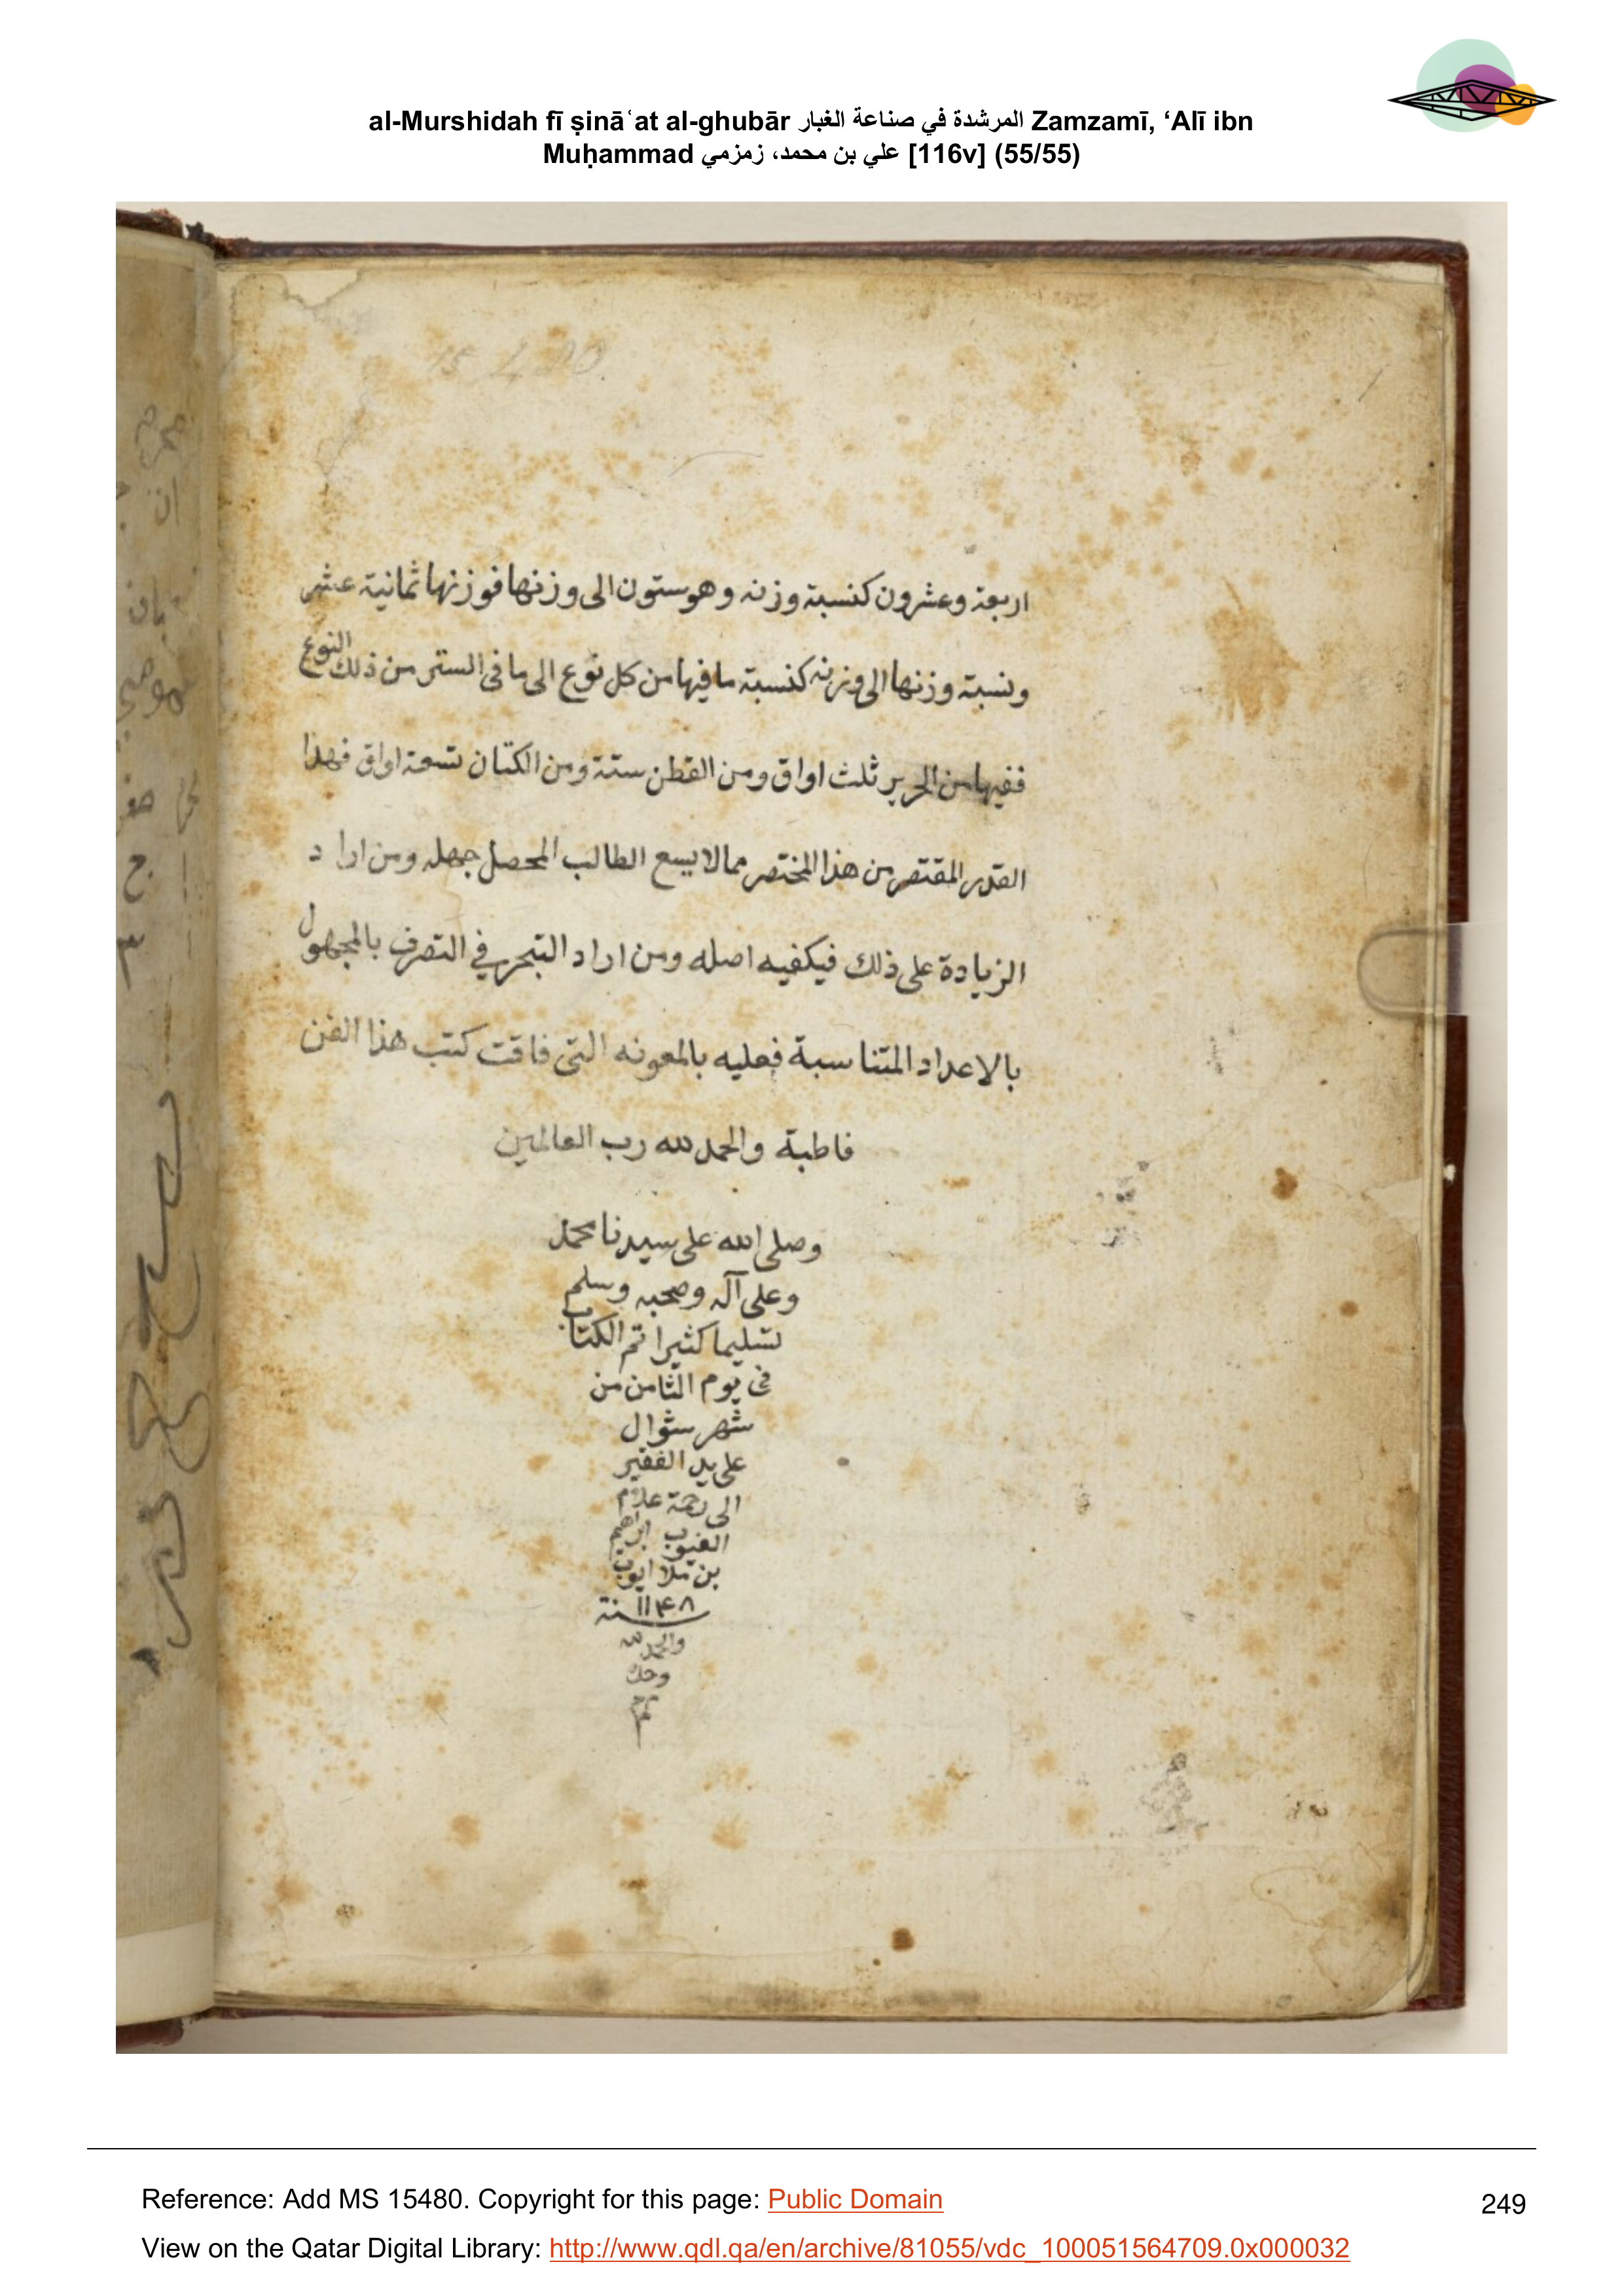 al-Murshidah fī ṣināʿat al-ghubār المرشدة في صناعة الغبار Zamzamī, ‘Alī ibn
Muḥammad علي بن محمد، زمزمي [116v] (55/55)
اربعة وعشرون كنسبة وزنه وهو ستون الى وزنها فوزنها ثمانية عشر
ونسبة وزنها الى وزنه كنسبة ما فيها من كل نوع الى ما فى الستر من ذلك النوع
ففيها من الحرير ثلث اواق ومن القطن ستة ومن الكتان تسعة اواق فهذا
القدر المقتصر من هذا المختصر مما لا يسع الطالب المحصل جهله ومن اراد
الزيادة على ذلك فيكفيه اصله ومن اراد التبحر في التصرف بالمجهول
بالاعداد المتناسبة فعليه بالمعونه التى فاقت كتب هذا الفن
قاطبة والحمد لله رب العالمين
وصلى الله على سيدنا محمد
وعلى آله وصحبه وسلم
تسليما كثيرا تم الكتاب
فى يوم الثامن من
شهر شوال
على يد الفقير
الى رحمة علام
الغيوب ابراهيم
بن ملا ايوب
سنة ۱۱۴۸
والحمد لله
وحده
تم
Reference: Add MS 15480. Copyright for this page: Public Domain
249
View on the Qatar Digital Library: http://www.qdl.qa/en/archive/81055/vdc_100051564709.0x000032